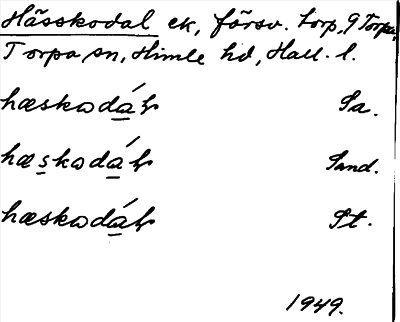 Hässkodal ek, försv. torp, 9 Torpa,
Torpa sn, Himle hd, Hall. l.
hæskadáɫ Sa.
hæskadáɫ Sand.
hæskadáɫ St.
1949.